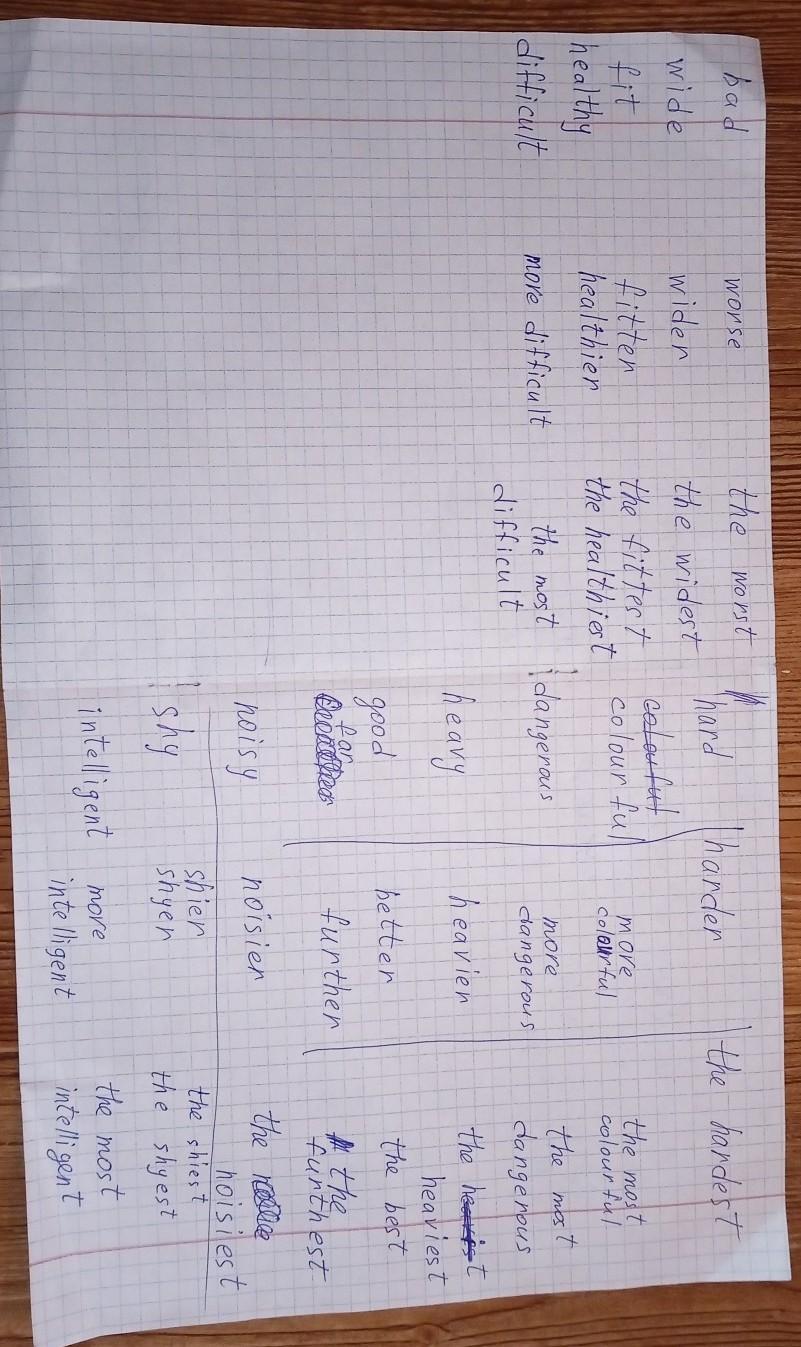 bad worse the worst
wide wider the widest
fit fitter the fittest
healthy healthier the healthiest
difficult more difficult the most
difficult
hard harder the hardest
colouful
colourful more the most
colourful colourful
! dangerous more the most
dangerous dangerous
heavy heavier the heaviest
good better the best
far further the
furthest
noisy noisier the noisiest
! shy shier the shiest
shyer the shyest
intelligent more the most
intelligent intelligent